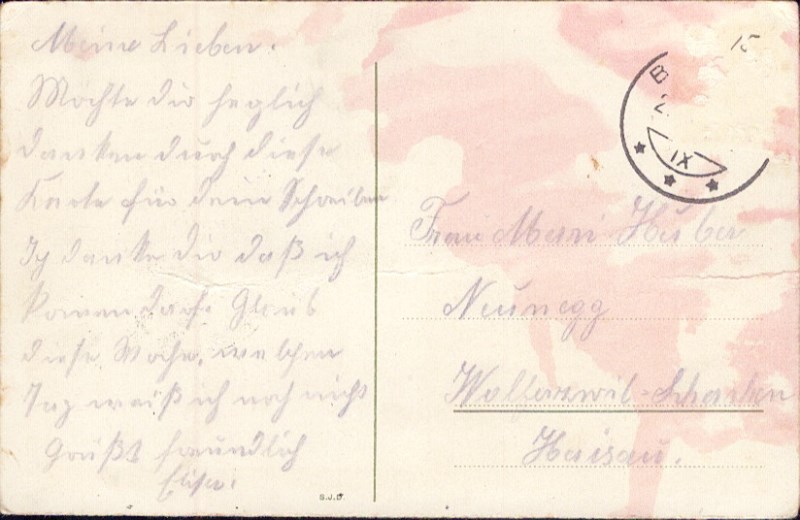 Meine Lieben.
Möchte dir herzlich
danken durch diese
Karte für dein Schreiben
Ich danke dir daß ich
kommen darf. Glaub
diese Woche, welchen
Tag weiß ich noch nicht
Grüßt freundlich
Elise.
G.J.D.
15
B
IX
Frau Mari Huber
Neunegg